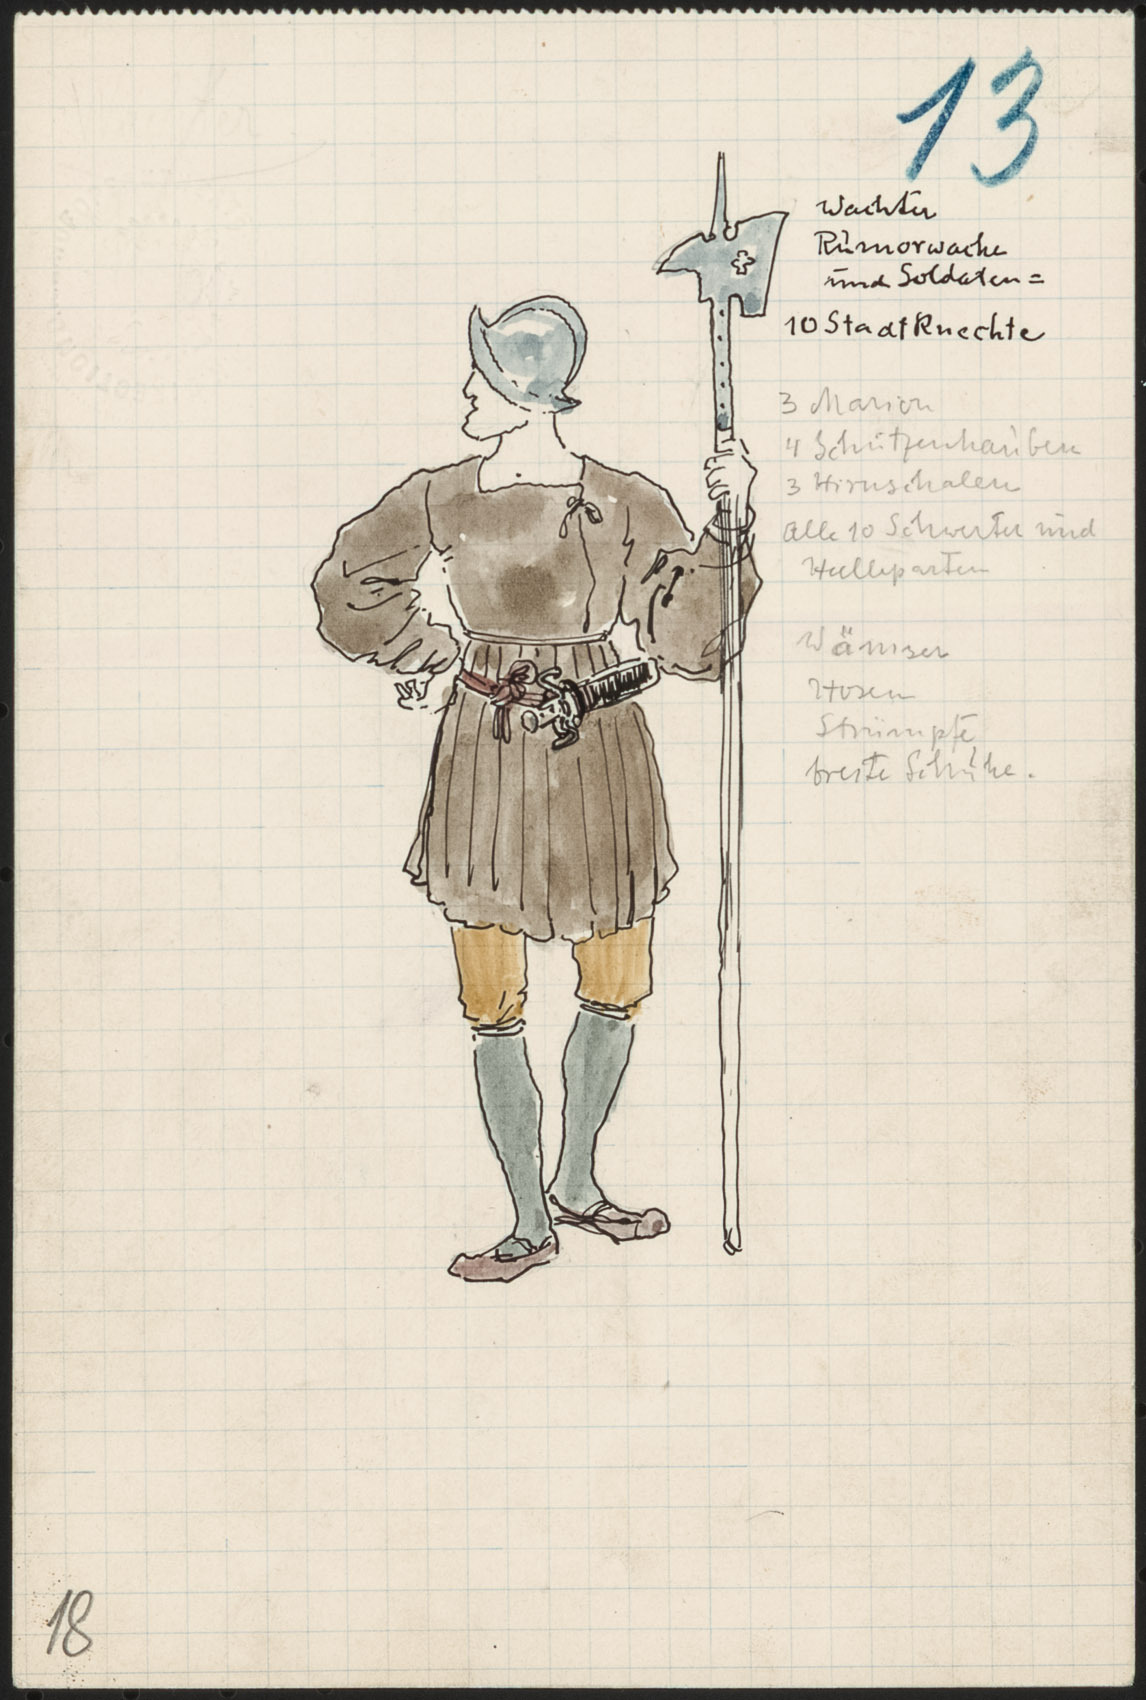 13
Wachter
Rumorwache
und Soldaten=
10 StadtKnechte
3 Marion
4 Schützenhauben
3 Hirnschalen
Alle 10 Schwerter und
Helleparten
Wämser
Hosen
Strümpfe
breite Schuhe.
18